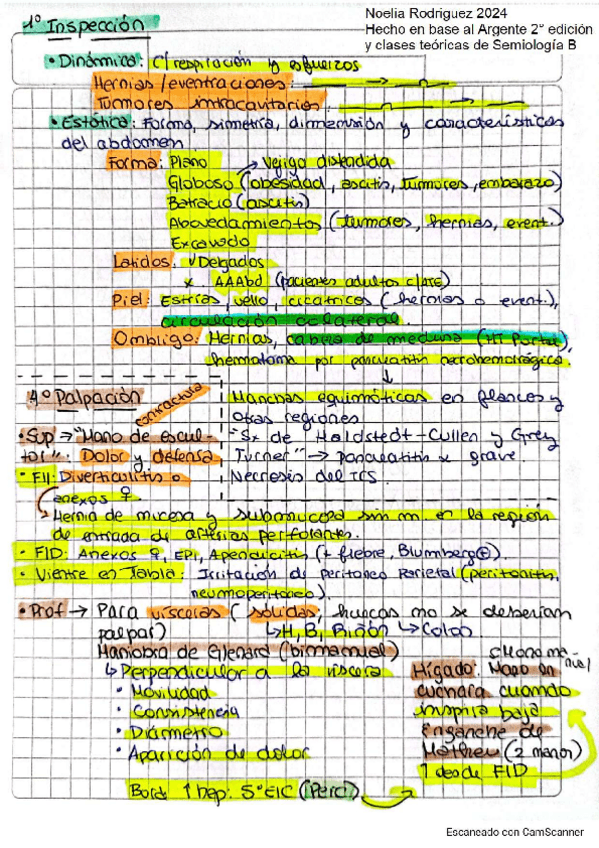 Noelia Rodriguez 2024
Hecho en base al Argente 2° edición
y clases teóricas de Semiología B
1° Inspección
• Dinámica: c/ respiración y esfuerzos
Hernias/eventraciones:
Tumores intracavitarios:
• Estática: Forma, simetría, dimensión y características
del abdomen
Forma: Plano → Vejiga distendida
Globoso (obesidad, ascitis, tumores, embarazo)
Batracio (ascitis)
Abovedamientos (tumores, hernias, event.)
Excavado
Latidos: ✓ Delgados
x AAAbd (pacientes adultos c/ATE)
Piel: Estrías, vello, cicatrices (hernias o event.),
circulación colateral.
Ombligo: Hernias, cabeza de medusa (HT Portal),
hematoma por pancreatitis necrohemorrágica.
↓
Manchas equimóticas en flancos y
otras regiones
"Sx de Haldstedt-Cullen y Grey
Turner" → pancreatitis x grave
Necrosis del TCS
4° Palpación
contractura
• Sup → "Mano de escul-
tor". Dolor y defensa
• FII: Diverticulitis o
anexos ♀
↳ Hernia de mucosa y submucosa sin m. en la región
de entrada de arterias perforantes.
• FID: Anexos ♀, EPI, Apendicitis (+ fiebre, Blumberg⊕).
• Vientre en Tabla: Irritación de peritoneo parietal (peritonitis,
neumoperitoneo).
• Prof → Para vísceras (sólidas, huecas no se deberían
palpar) ↳ H, B, Riñón ↳ Colon
Maniobra de Glenard (bimanual)
↳ Perpendicular a la víscera
• Movilidad
• Consistencia
• Diámetro
• Aparición de dolor
Hígado: Mano en
cuchara cuando
inspira baja
Enganche de
Mathieu (2 manos)
↑ desde FID
Borde ↑ hep: 5° EIC (Perc)
Escaneado con CamScanner